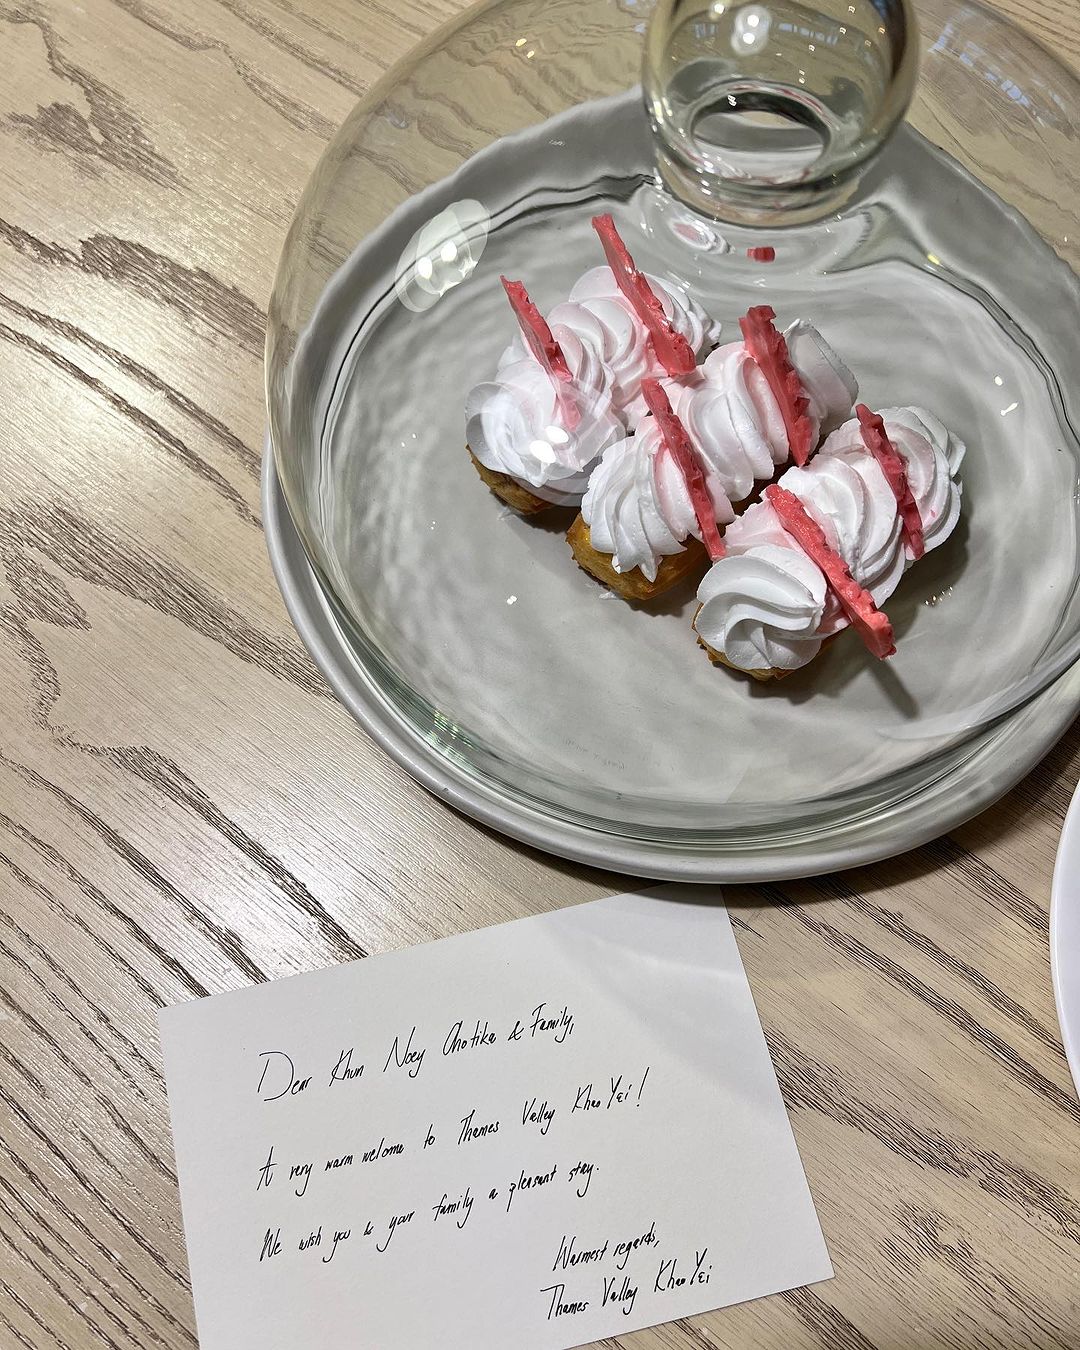 Dear Khun Noey Chotika & Family,
A very warm welcome to Thames Valley Khao Yai!
We wish you & your family a pleasant stay.
Warmest regards,
Thames Valley Khao Yai